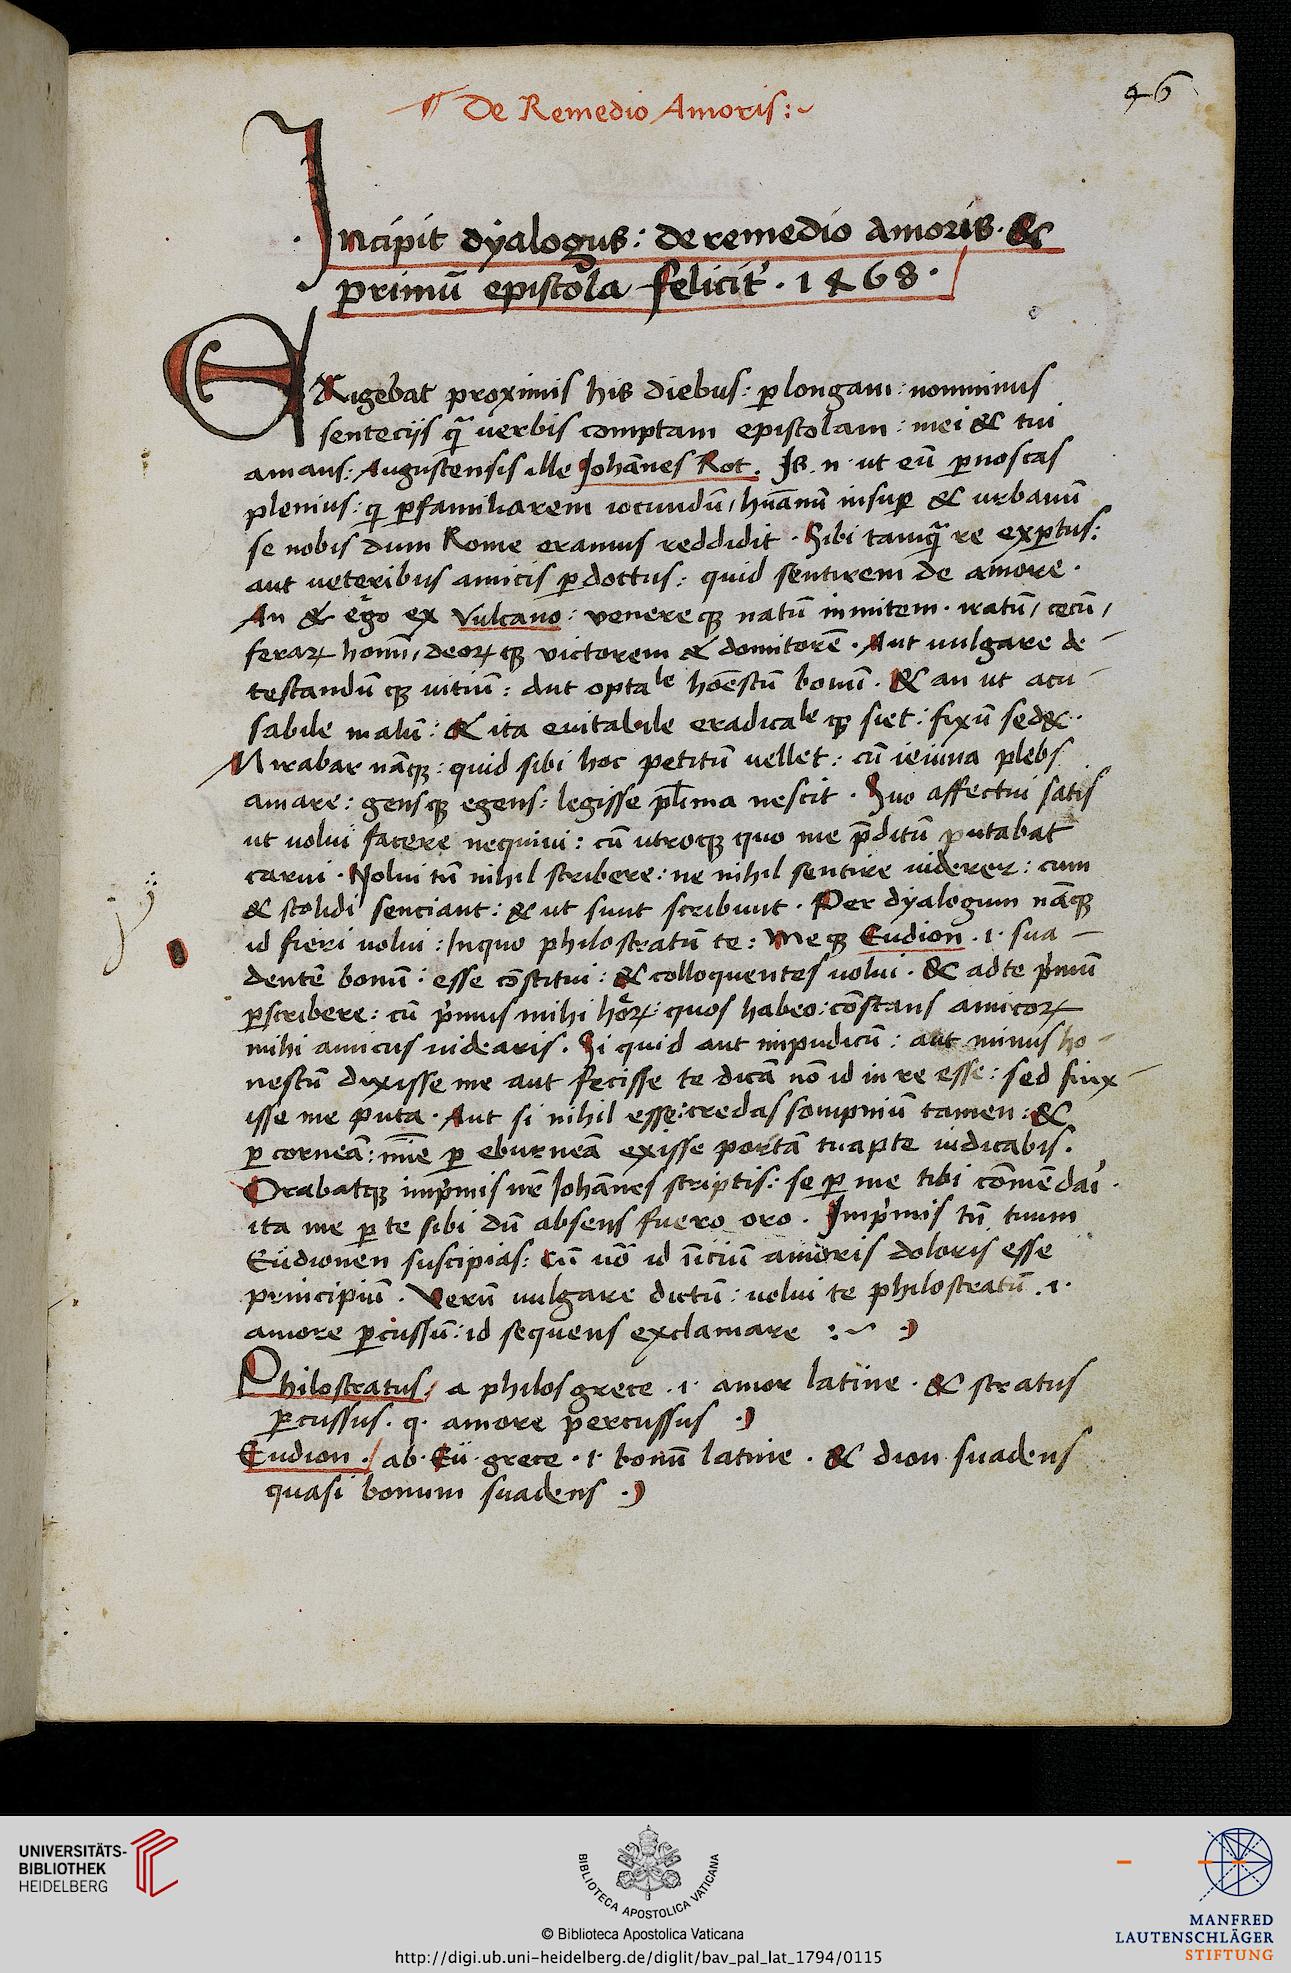 ¶ De Remedio Amoris:~
46
Incipit dyalogus: de remedio amoris. &
primū epistola felicit'. 1468.
EXigebat proximis his diebus: p longam: nominus
sentecijs q̄ verbis comptam epistolam: mei & tui
amans: Augustensis ille Johānes Rot. Is .n. ut eū pernoscas
plenius: q perfamiliarem iocundū, hūanū insuper & urbanū
se nobis dum Rome eramus reddidit. Sibi tamq̄ re expertus:
aut veteribus amicis perdoctus: quid sentirem de amore.
An & ego ex Vulcano: venereque natū inmitem. iratū, cecū,
ferarꝝ homī, deorꝝque victorem & domitorē. Aut vulgare de
testandūque vitiū: Aut optale hoēstū bonū. & an ut acu
sabile malū: & ita evitabile eradicaleque siet: fixū sed &.
Mirabar nāque: quid sibi hoc petitū vellet: cū ieiuna plebs
amare: gensque egens: legisse plīma nescit. Suo affectui satis
ut volui facere nequivi: cū utroque quo me p̄ditū putabat
carui. Nolui tn̄ nihil scribere: ne nihil sentire viderer: cum
& stolidi senciant: & ut sunt scribunt. Per dyalogum nāque
id fieri volui: Inquo philostratū te: Meque Eudion .i. sua
dentē bonū: esse cōstitui: & colloquentes volui. & ad te p'mū
perscribere: cū p'mus mihi horꝝ: quos habeo: cōstans amicorꝝ
mihi amicus videaris. Si quid aut impudicū: aut minus ho
nestū dixisse me aut fecisse te dicā nō id in re esse: sed finx
isse me puta. Aut si nihil esse: credas sompniū tamen: &
per corneā: mīe per eburneā exisse portā tuapte iudicabis.
Orabatque imp'mis nr̄ Johānes scriptis: se per me tibi cōmēdari.
ita me per te sibi dū absens fuero oro. Imp'mis tn̄ tuum
Eudionen suscipias: cū vō id īitiū amoris doloris esse
principiū. Verū vulgare dictū: volui te philostratū .i.
amore percussū: id sequens exclamare :~
Philostratus, a philos grece .i. amor latine. & stratus
percussus. q. amore percussus.
Eudion. ab. Eu grece .i. bonū latine. & dion suadens
quasi bonum suadens.
UNIVERSITÄTS-
BIBLIOTHEK
HEIDELBERG
BIBLIOTECA APOSTOLICA VATICANA
© Biblioteca Apostolica Vaticana
http://digi.ub.uni-heidelberg.de/diglit/bav_pal_lat_1794/0115
MANFRED
LAUTENSCHLÄGER
STIFTUNG